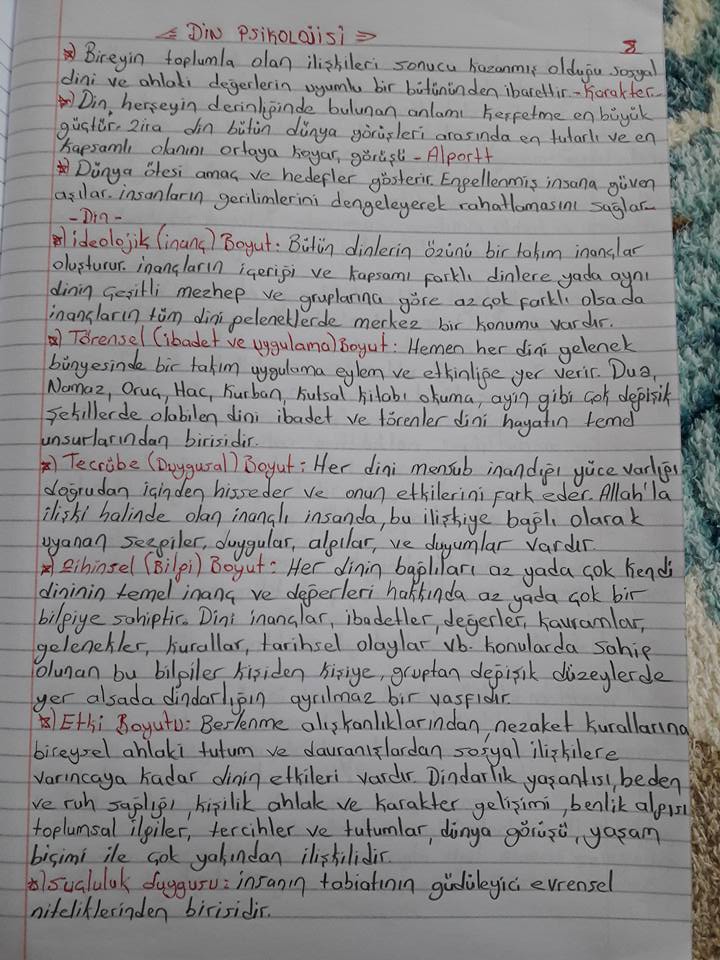 << DİN PSİKOLOJİSİ >>
8
*) Bireyin toplumla olan ilişkileri sonucu kazanmış olduğu sosyal
dini ve ahlaki değerlerin uyumlu bir bütününden ibarettir. - Karakter -
*) Din, herşeyin derinliğinde bulunan anlamı keşfetme en büyük
güçtür. Zira din bütün dünya görüşleri arasında en tutarlı ve en
kapsamlı olanını ortaya koyar, görüşü - Alportt
*) Dünya ötesi amaç ve hedefler gösterir. Engellenmiş insana güven
aşılar. insanların gerilimlerini dengeleyerek rahatlamasını sağlar
- Din -
*) ideolojik (inanç) Boyut: Bütün dinlerin özünü bir takım inançlar
oluşturur. inançların içeriği ve kapsamı farklı dinlere yada aynı
dinin çeşitli mezhep ve gruplarına göre az çok farklı olsada
inançların tüm dini geleneklerde merkez bir konumu vardır.
*) Törensel (ibadet ve uygulama) Boyut: Hemen her dini gelenek
bünyesinde bir takım uygulama eylem ve etkinliğe yer verir. Dua,
Namaz, Oruç, Hac, Kurban, kutsal kitabı okuma, ayin gibi çok değişik
şekillerde olabilen dini ibadet ve törenler dini hayatın temel
unsurlarından birisidir.
*) Tecrübe (Duygusal) Boyut: Her dini mensub inandığı yüce varlığı
doğrudan içinden hisseder ve onun etkilerini fark eder. Allah'la
ilişki halinde olan inançlı insanda, bu ilişkiye bağlı olarak
uyanan sezgiler, duygular, algılar, ve duyumlar vardır.
*) Zihinsel (Bilgi) Boyut: Her dinin bağlıları az yada çok kendi
dininin temel inanç ve değerleri hakkında az yada çok bir
bilgiye sahiptir. Dini inançlar, ibadetler, değerler, kavramlar,
gelenekler, kurallar, tarihsel olaylar vb. konularda sahip
olunan bu bilgiler kişiden kişiye, gruptan değişik düzeylerde
yer alsada dindarlığın ayrılmaz bir vasfıdır.
*) Etki Boyutu: Beslenme alışkanlıklarından, nezaket kurallarına
bireysel ahlaki tutum ve davranışlardan sosyal ilişkilere
varıncaya kadar dinin etkileri vardır. Dindarlık yaşantısı, beden
ve ruh sağlığı, kişilik ahlak ve karakter gelişimi, benlik algısı
toplumsal ilgiler, tercihler ve tutumlar, dünya görüşü, yaşam
biçimi ile çok yakından ilişkilidir.
*) Suçluluk duygusu: insanın tabiatının güdüleyici evrensel
niteliklerinden birisidir.